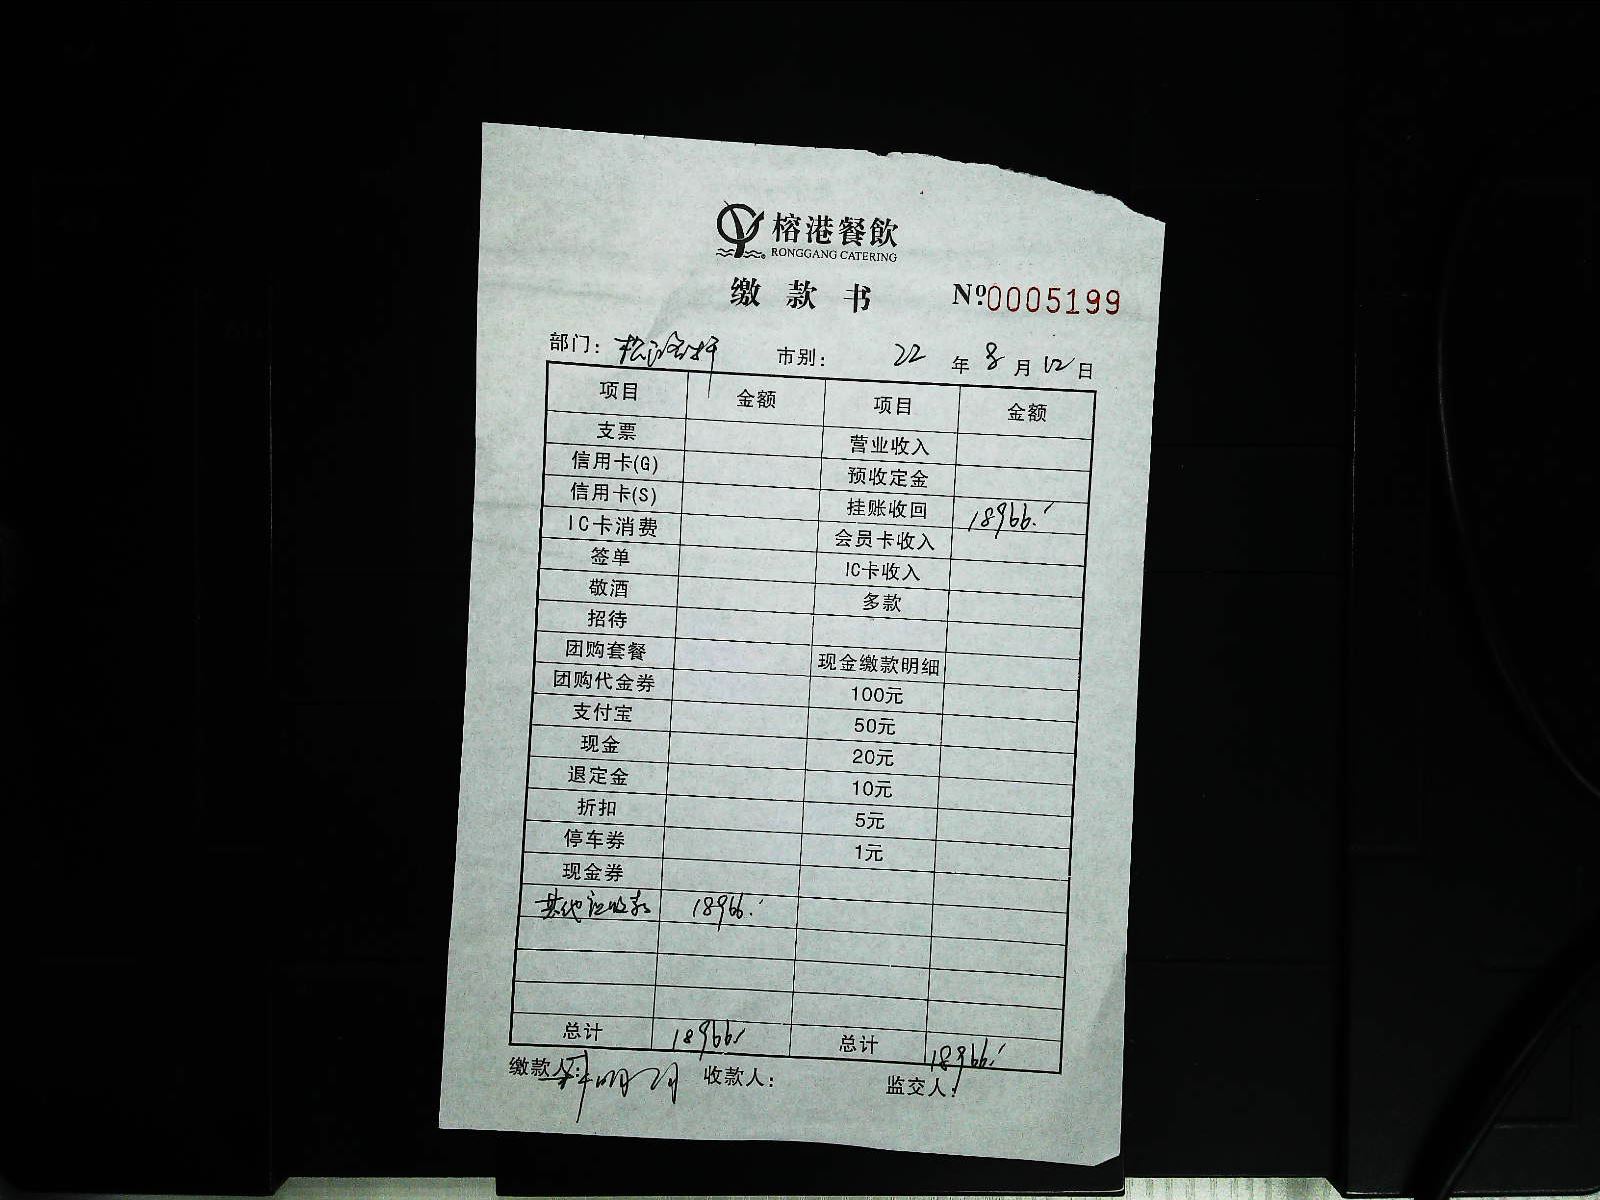 榕港餐飲
RONGGANG CATERING
缴款书 Nº0005199
部门： 市别： 22 年 8 月 12 日
项目 金额 项目 金额
支票 营业收入
信用卡(G) 预收定金
信用卡(S) 挂账收回 18966.
IC卡消费 会员卡收入
签单 IC卡收入
敬酒 多款
招待
团购套餐 现金缴款明细
团购代金券 100元
支付宝 50元
现金 20元
退定金 10元
折扣 5元
停车券 1元
现金券
其他应收款 18966.
总计 18966 总计 18966.
缴款人： 收款人： 监交人：